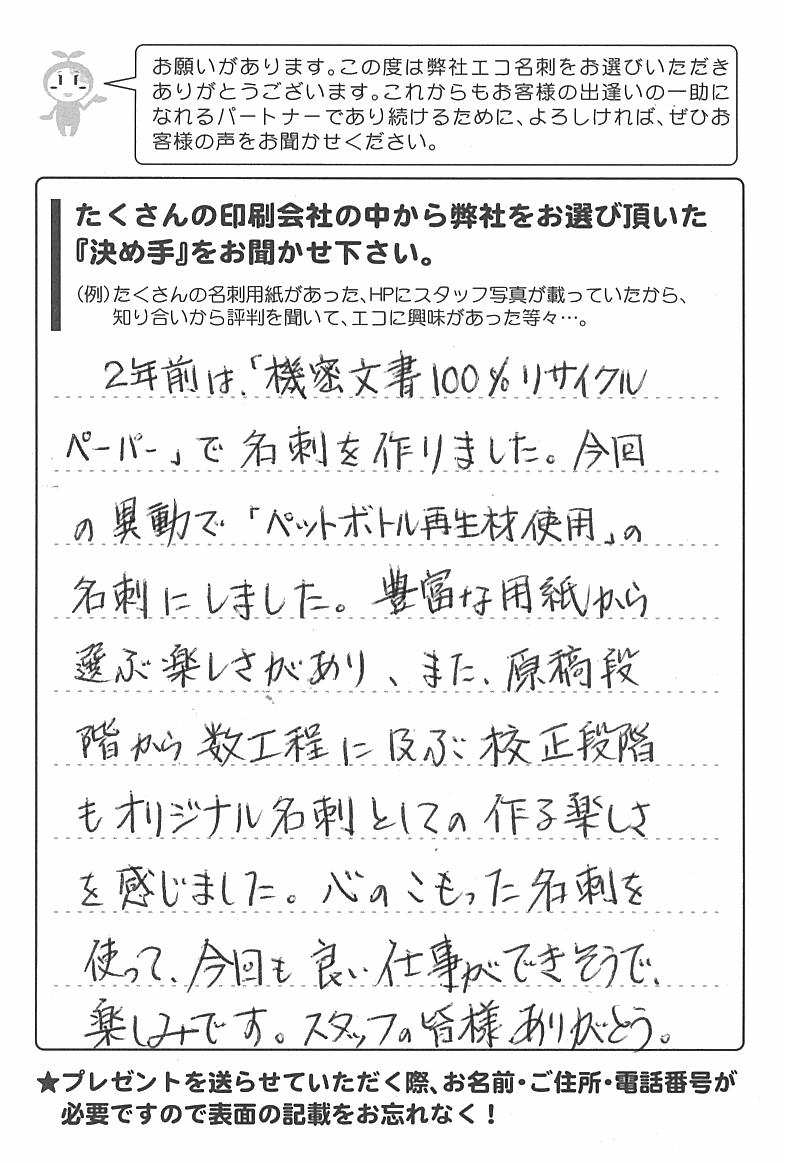 お願いがあります。この度は弊社エコ名刺をお選びいただき
ありがとうございます。これからもお客様の出逢いの一助に
なれるパートナーであり続けるために、よろしければ、ぜひお
客様の声をお聞かせください。
たくさんの印刷会社の中から弊社をお選び頂いた
『決め手』をお聞かせ下さい。
（例）たくさんの名刺用紙があった、HPにスタッフ写真が載っていたから、
知り合いから評判を聞いて、エコに興味があった等々…。
2年前は、「機密文書100%リサイクル
ペーパー」で名刺を作りました。今回
の異動で「ペットボトル再生材使用」の
名刺にしました。豊富な用紙から
選ぶ楽しさがあり、また、原稿段
階から数工程に及ぶ校正段階
もオリジナル名刺としての作る楽しさ
を感じました。心のこもった名刺を
使って、今回も良い仕事ができそうで、
楽しみです。スタッフの皆様ありがとう。
★プレゼントを送らせていただく際、お名前・ご住所・電話番号が
必要ですので表面の記載をお忘れなく！